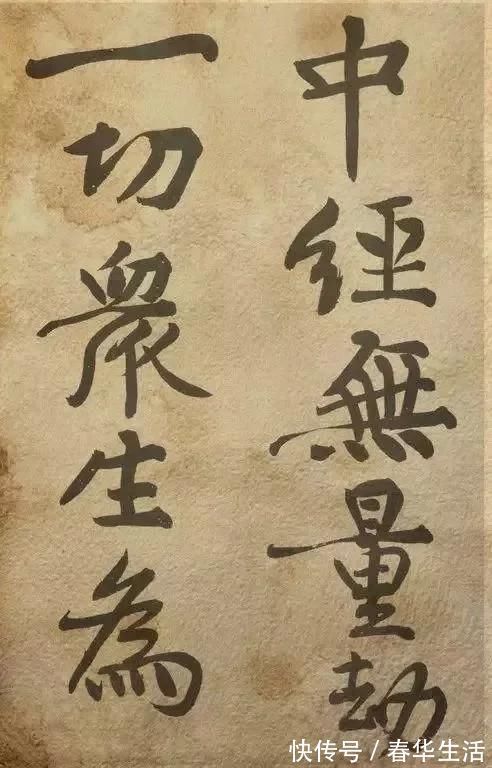 中經無量劫
一切眾生為
快传号/春华生活